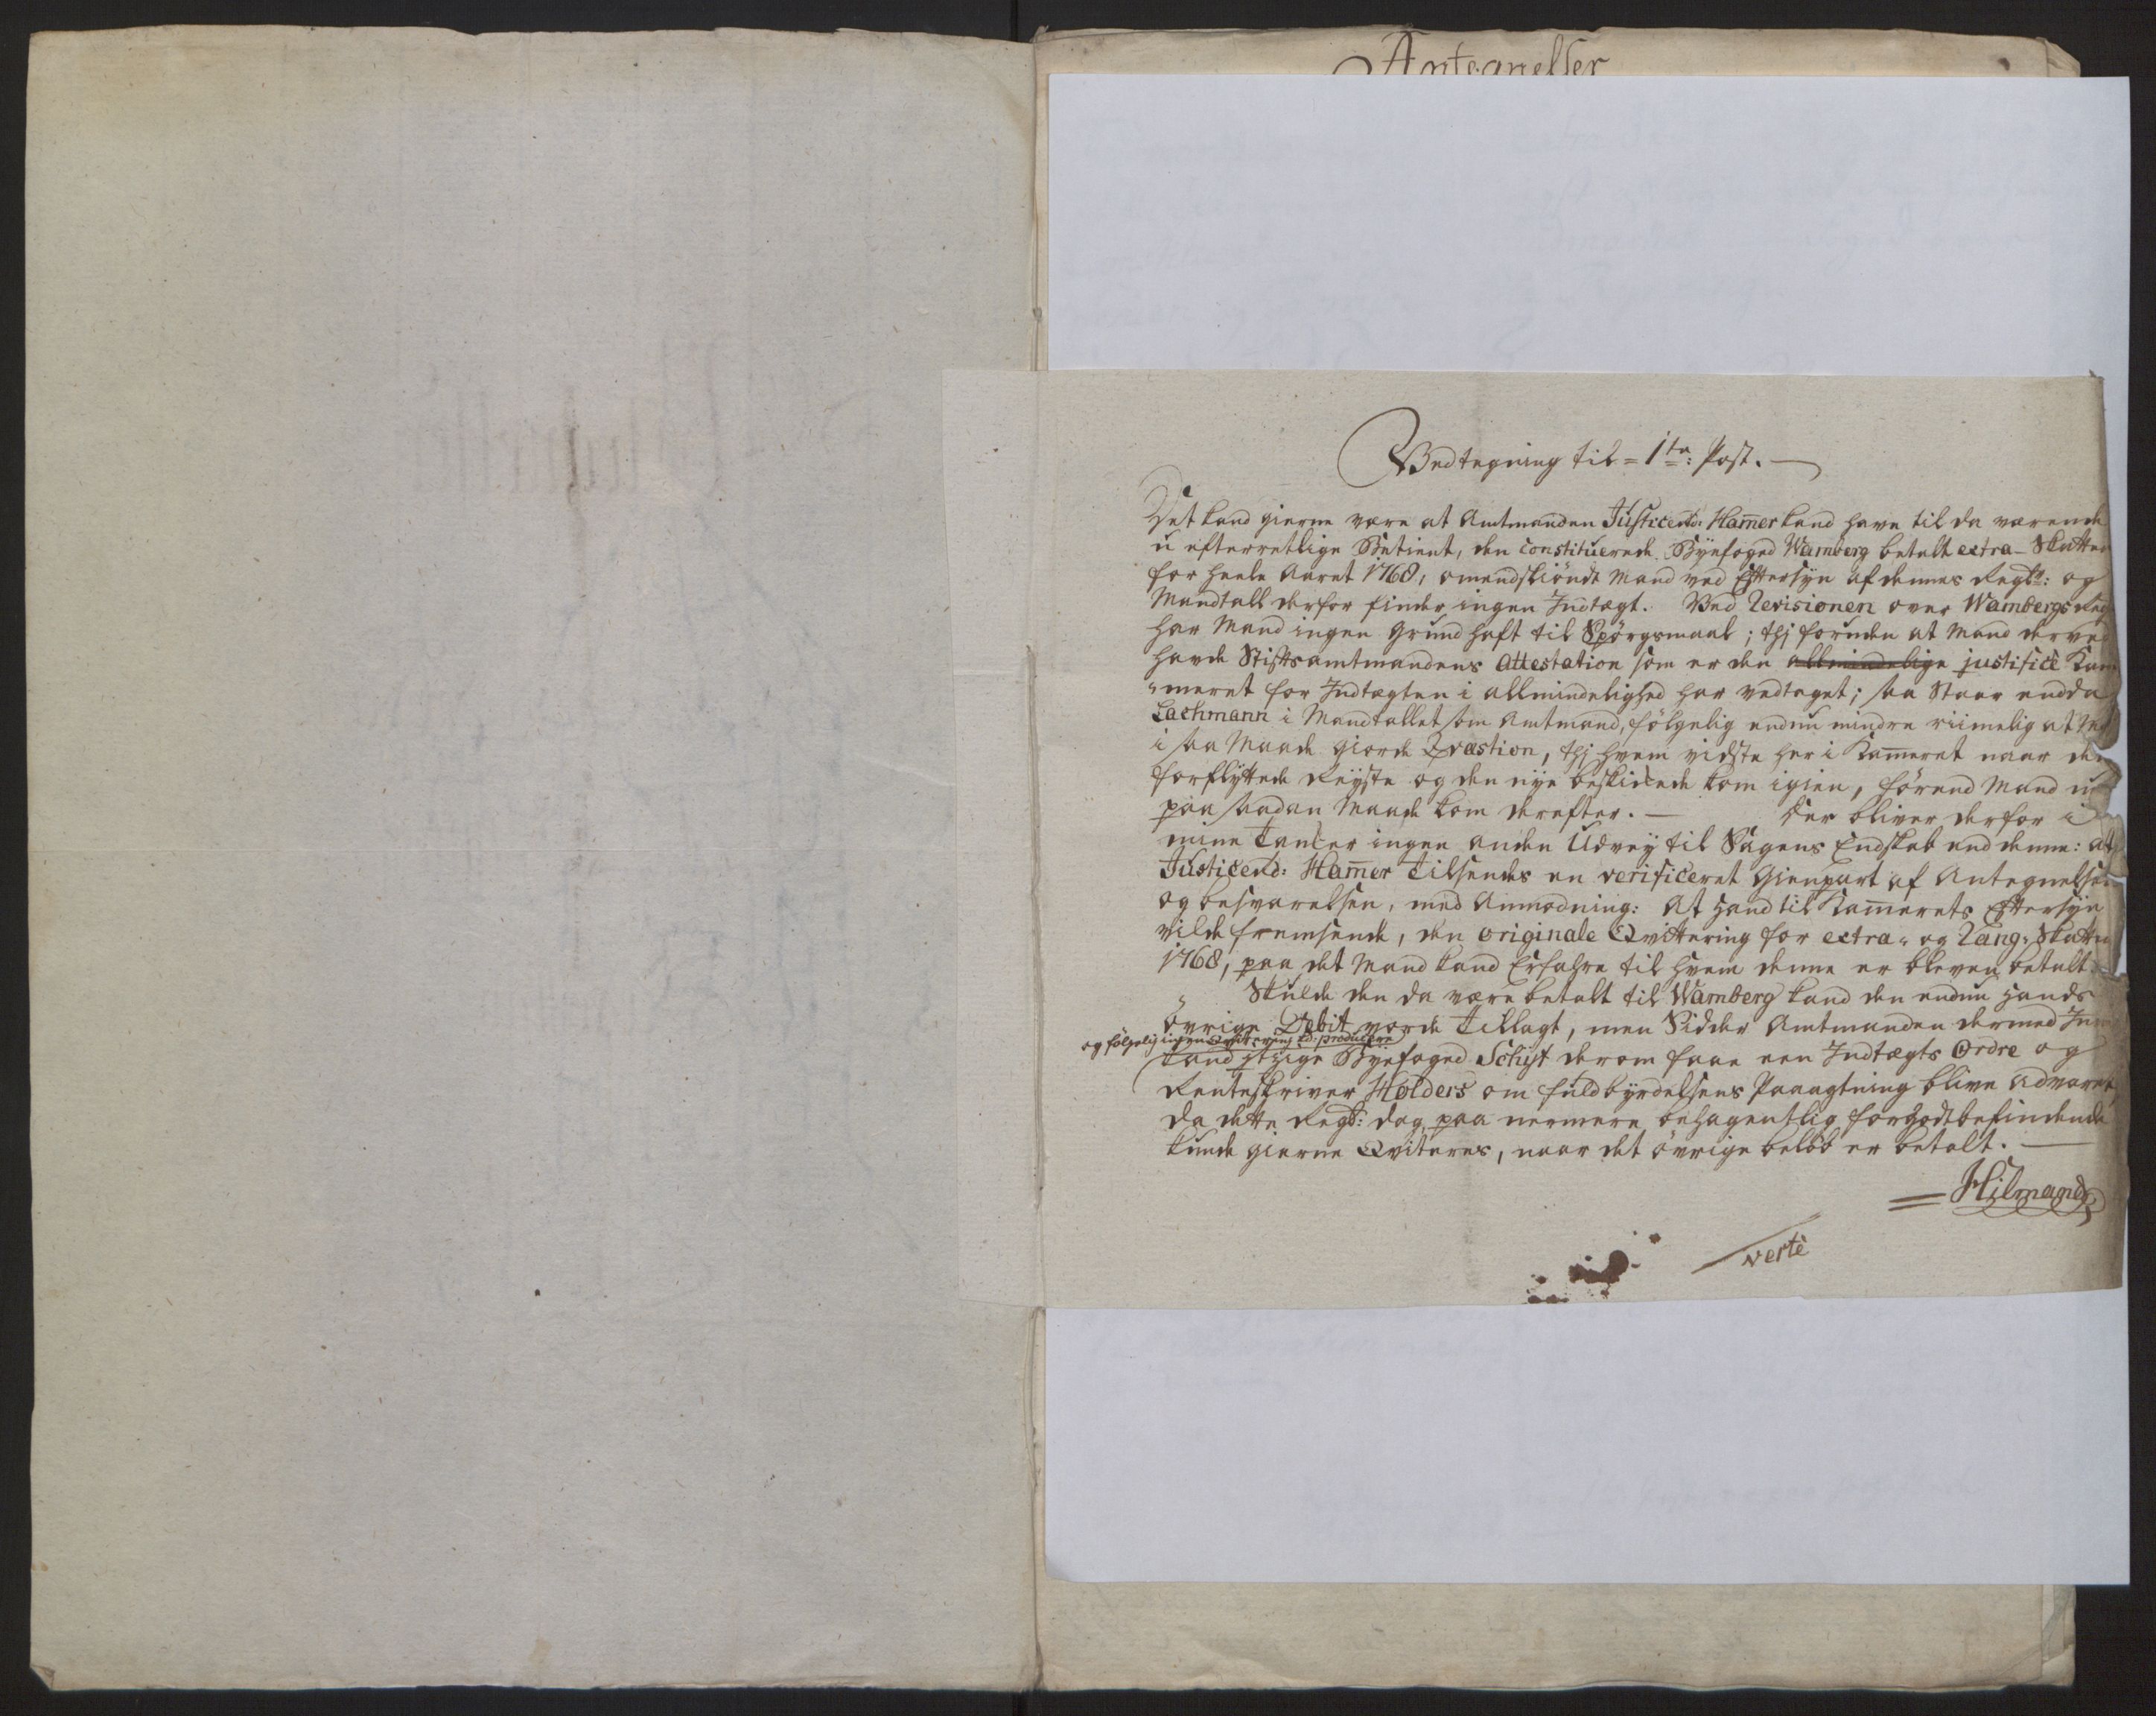 Antegnelser
Vedtegning til = 1te: Post.
Det kand gierne være at Amtmanden Justicerd: Ham̄er kand have til da værende
u efterretlige Betient, den constituerede Byefoged Wamberg betalt extra-Skatten
for heele Aaret 1768, omendskiöndt Mand ved Eftersyn af dennes Regsk: og
Mandtall derfor finder ingen Indtægt. Ved Revisionen over Wambergs Reg
har Mand ingen Grund haft til Spörgsmaal; thj foruden at Mand derved
havde Stiftsamtmandens Attestation som er den allmindelige justifice Kam
"meret for Indtægten i allmindelighed har vedtaget; saa Staar endda
Lachmann i Mandtallet som Amtmand, fölgelig endnu mindre riimelig at
i saa Maade giorde Qvæstion, thj hvem vidste her i Kam̄eret naar den
forflyttede Reyste og den nye beskickede kom igien, förend Mand nu
paa saadan Maade kom derefter. — Der bliver derfor i
mine Tancker ingen anden Udvey til Sagens Endskab end denne: at
Justicerd: Ham̄er tilsendes en verificeret Gienpart af Antegnelsen
og besvarelsen, med Anmodning: At Hand til Kam̄erets Eftersyn
vilde fremsende, den originale Qvittering for extra- og Rang-Skatten
1768, paa det Mand kand Erfahre til hvem denne er bleven betalt.
Skulde den da være betalt til Wamberg kand den endnu Hands
övrige Debit vorde tillagt, men Sidder Amtmanden dermed Inne
og fölgelig ingen Qvittering kd: producere
kand Byefoged Schyt derom faae een Indtægts Ordre og
Renteskriver Holders om fuldbyrdelsens Paaagtning blive advaret,
da dette Regsk: dog, paa nermere behagentlig forgodtbefindende
kunde gierne Qviteres, naar det övrige belöb er betalt. —
Hilmand
verte